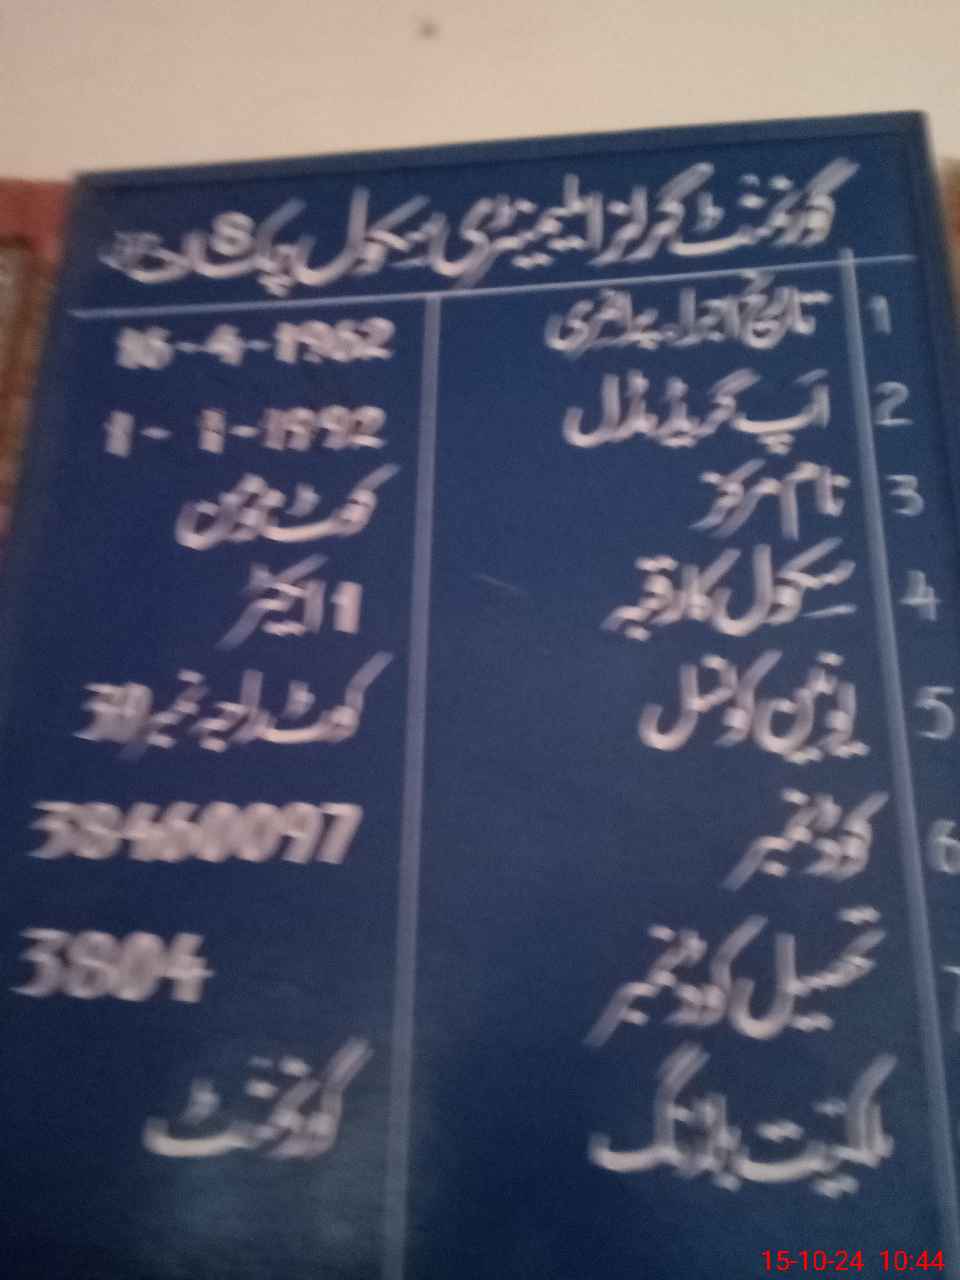 گورنمنٹ گرلز ایلیمنٹری سکول چک
1 تاریخ اجراء پرائمری 16-4-1962
2 اَپ گریڈ مڈل 1-1-1992
3 نام مرکز کوٹ
4 سکول کا رقبہ 1 ایکڑ
5 یونین کونسل کوٹ راجہ نمبر
6 کوڈ نمبر 38460097
تحصیل کوڈ نمبر 3804
ملکیت بلڈنگ گورنمنٹ
15-10-24 10:44